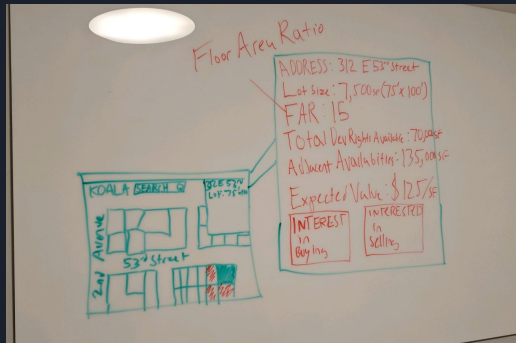 Floor Area Ratio
ADDRESS: 312 E 53rd Street
Lot Size: 7,500 SF (75'x100')
FAR: 15
Total Dev Rights Available: 70,000 SF
Adjacent Availabilities: 135,000 SF
Expected Value: $125/SF
INTEREST
in
Buying
INTERESTED
in
Selling
KOALA SEARCH
312 E 53rd
LOT: 75'x100'
2nd Avenue
53rd Street